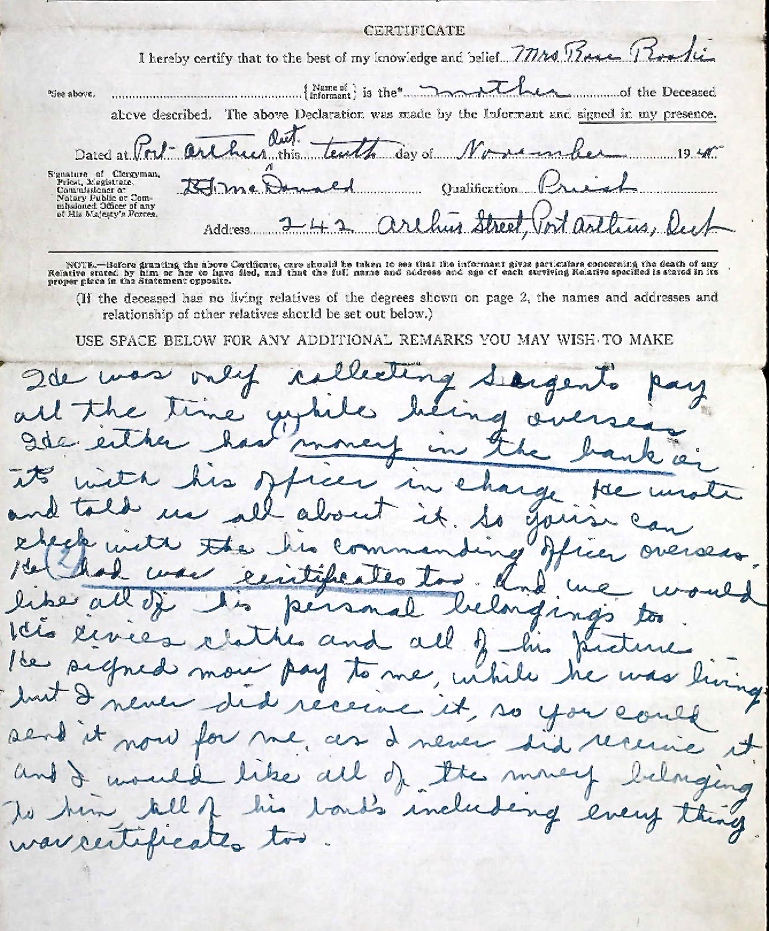 CERTIFICATE
I hereby certify that to the best of my knowledge and belief Mrs Rose
*See above. {Name of Informant} is the* mother of the Deceased
above described. The above Declaration was made by the Informant and signed in my presence.
Dated at Port Arthur Ont. this tenth day of November 19
Signature of Clergyman, Priest, Magistrate, Commissioner or Notary Public or Commissioned Officer of any of His Majesty's Forces. McDonald Qualification Priest
Address 242 Arthur Street, Port Arthur, Ont
NOTE.—Before granting the above Certificate, care should be taken to see that the informant gives particulars concerning the death of any
Relative stated by him or her to have died, and that the full name and address and age of each surviving Relative specified is stated in its
proper place in the Statement opposite.
(If the deceased has no living relatives of the degrees shown on page 2, the names and addresses and
relationship of other relatives should be set out below.)
USE SPACE BELOW FOR ANY ADDITIONAL REMARKS YOU MAY WISH TO MAKE
He was only collecting Sargents pay
all the time while being overseas
He either has (1) money in the bank or
its with his officer in charge He wrote
and told us all about it. So you can
check with the his commanding officer overseas.
He (2) had war certificates too. and we would
like all of his personal belongings too.
His civies clothes and all of his pictures
He signed more pay to me, while he was living
but I never did receive it, so you could
send it now for me, as I never did receive it
and I would like all of the money belonging
to him, all of his bonds including every thing
war certificates too.